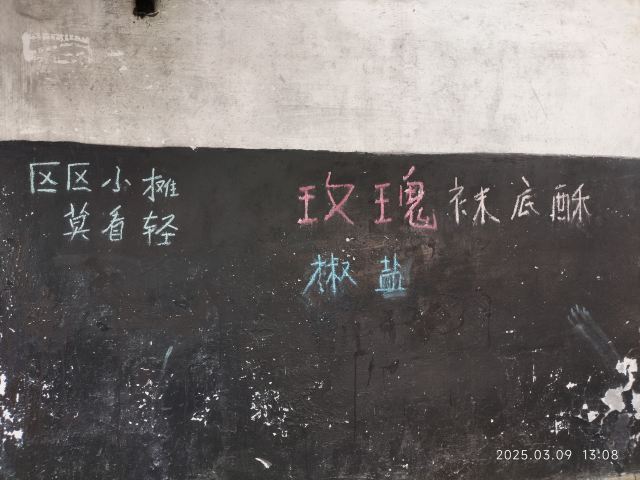 区区小摊
莫看轻
玫瑰袜底酥
椒盐
2025.03.09 13:08